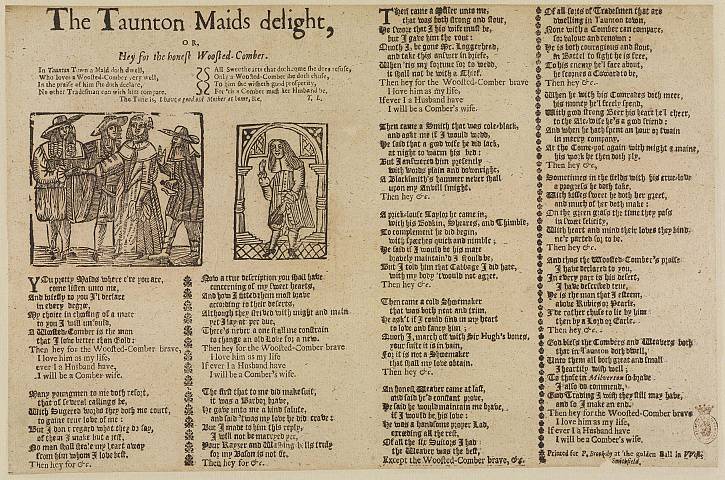 The Taunton Maids delight,
OR,
Hey for the honest Woosted-Comber.
In Taunton Town a Maid doth dwell,
Who loves a Woosted-Comber very well,
In the praise of him she doth declare,
No other Tradesman can with him compare.
All Sweethearts that doth come she does refuse,
Only a Woosted-Comber she doth chuse,
To him she wisheth good prosperity,
For 'tis a Comber must her Husband be.
The Tune is, I have a good old Mother at home, &c. T. L.
YOu pretty Maids where e're you are,
come listen unto me,
And briefly to you I'l declare
in every degree,
My choice in chusing of a mate
to you I will unfold,
A Woosted-Comber is the man
that I love better than Gold:
Then hey for the Woosted-Comber brave,
I love him as my life,
ever I a Husband have,
I will be a Comber wife.
Many youngmen to me doth resort,
that of several callings be,
With Sugered words they doth me court,
to gaine true love of me:
But I don't regard what they do say,
of them I make but a jest,
No man shall steale my heart away
from him whom I love best.
Then hey for &c.
Now a true description you shall have
concerning of my sweet hearts,
And how I fitted them most brave
according to their deserts,
Although they strived with might and main
yet I lay at per due,
There's never a one shall me constrain
to change an old Love for a new.
Then hey for the Woosted-Comber brave
I love him as my life
If ever I a Husband have
I will be a Comber's wife.
The first that to me did make suit,
it was a Barbor brave,
He gave unto me a kind salute,
and said 'twas my love he did crave:
But I made to him this reply,
I will not be marryed yet,
Your Rayer and Washing-balls truly
for my Bason is not fit.
Then hey for &c.
Then came a Miller unto me,
that was both strong and stout,
He swore that I his wife must be,
but I gave him the rout:
Quoth I, be gone Mr. Loggerhead,
and take this answer in briefe,
When 'tis my fortune for to wedd,
it shall not be with a Thief.
Then hey for the Woosted-Comber brave
I love him as my life,
If ever I a Husband have
I will be a Comber's wife.
Then came a Smith that was cole-black,
and askt me if I would wed,
He said that a good wife he did lack,
at night to warm his bed:
But I answered him presently
with words plain and downright,
A Blacksmith's hammer never shall
upon my Anvill smight.
Then hey &c,
A prick-louse Taylor he came in,
with his Bodkin, Sheares, and Thimble,
To complement he did begin,
with speeches quick and nimble;
He said if I would be his mate
bravely maintain'd I should be,
But I told him that Cabbage I did hate,
with my body 'twould not agree.
Then hey &c.
Then came a cold Shoemaker
that was both neat and trim,
He ask't if I could find in my heart
to love and fancy him;
Quoth I, march off with Sir Hugh's bones,
your suite it is in vain,
For it is not a Shoemaker
that shall my love obtain.
Then hey &c.
An honest Weaver came at last,
and said he'd constant prove,
He said he would maintain me brave,
if I would be his love:
He was a handsome proper Lad,
exceeding all the rest,
Of all the fine Sutors I had
the Weaver was the best,
Except the Woosted-Comber brave, &c.
Of all sorts of Tradesmen that are
dwelling in Taunton town,
None with a Comber can compare,
for valour and renown:
He is both couragious and stout,
in Battel to fight he is free,
To his enemy he'l face about,
he scornes a Coward to be,
Then hey &c.
When he with his Comrades doth meet,
his money he'l freely spend,
With good strong Beer his heart he'l cheer,
to the Ale-wife he's a good friend:
And when he hath spent an hour or twain
in merry company,
At the Comb-pot again with might & maine,
his work he then doth ply.
Then hey &c,
Sometimes in the fields with his true-love
a progress he doth take,
With kisses sweet he doth her greet,
and much of her doth make:
On the green grass the time they pass
in sweet felicity,
With heart and mind their loves they bind
ne'r parted for to be.
Then hey &c.
And thus the Woosted-Comber's praise
I have declared to you,
In every part is his desert,
I have described true,
He is the man that I esteem,
above Rubies or Pearle,
I'de rather chuse to lie by him
then by a Lord or Earle.
Then hey &c.
God bless the Combers and Weavers both
that in Taunton doth dwell,
Unto them all both great and small
I heartily wish well;
To those in Milverton so brave
I also do commend,
God Trading I wish they still may have,
and so I make an end.
Then hey for the Woosted-Comber brave
I love him as my life,
If ever I a Husband have
I will be a Comber's wife.
Printed for P. Brooksby at the golden Ball in
Smithfield.